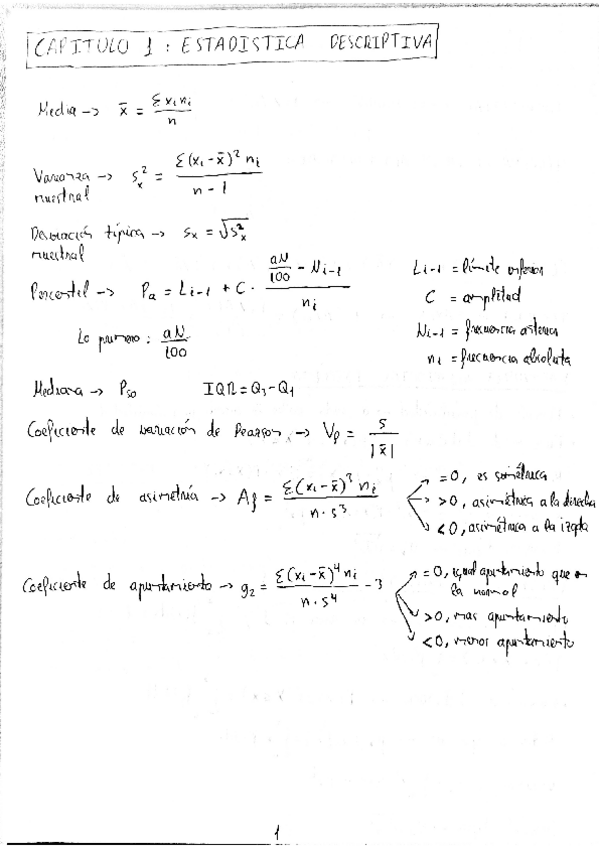 CAPITULO 1 : ESTADISTICA DESCRIPTIVA
Media -> x̄ = Σxᵢnᵢ / n
Varianza muestral -> sₓ² = Σ(xᵢ-x̄)² nᵢ / n - 1
Desviación típica muestral -> sₓ = √sₓ²
Percentil -> Pₐ = Lᵢ₋₁ + C · (aN/100 - Nᵢ₋₁) / nᵢ
Lᵢ₋₁ = límite inferior
C = amplitud
Nᵢ₋₁ = frecuencia anterior
nᵢ = frecuencia absoluta
Lo primero : aN/100
Mediana -> P₅₀ IQR = Q₃ - Q₁
Coeficiente de variación de Pearson -> Vₚ = s / |x̄|
Coeficiente de asimetría -> Af = Σ(xᵢ-x̄)³ nᵢ / n · s³
= 0, es simétrica
> 0, asimétrica a la derecha
< 0, asimétrica a la izqda
Coeficiente de apuntamiento -> g₂ = Σ(xᵢ-x̄)⁴ nᵢ / n · s⁴ - 3
= 0, igual apuntamiento que la normal
> 0, mas apuntamiento
< 0, menos apuntamiento
1